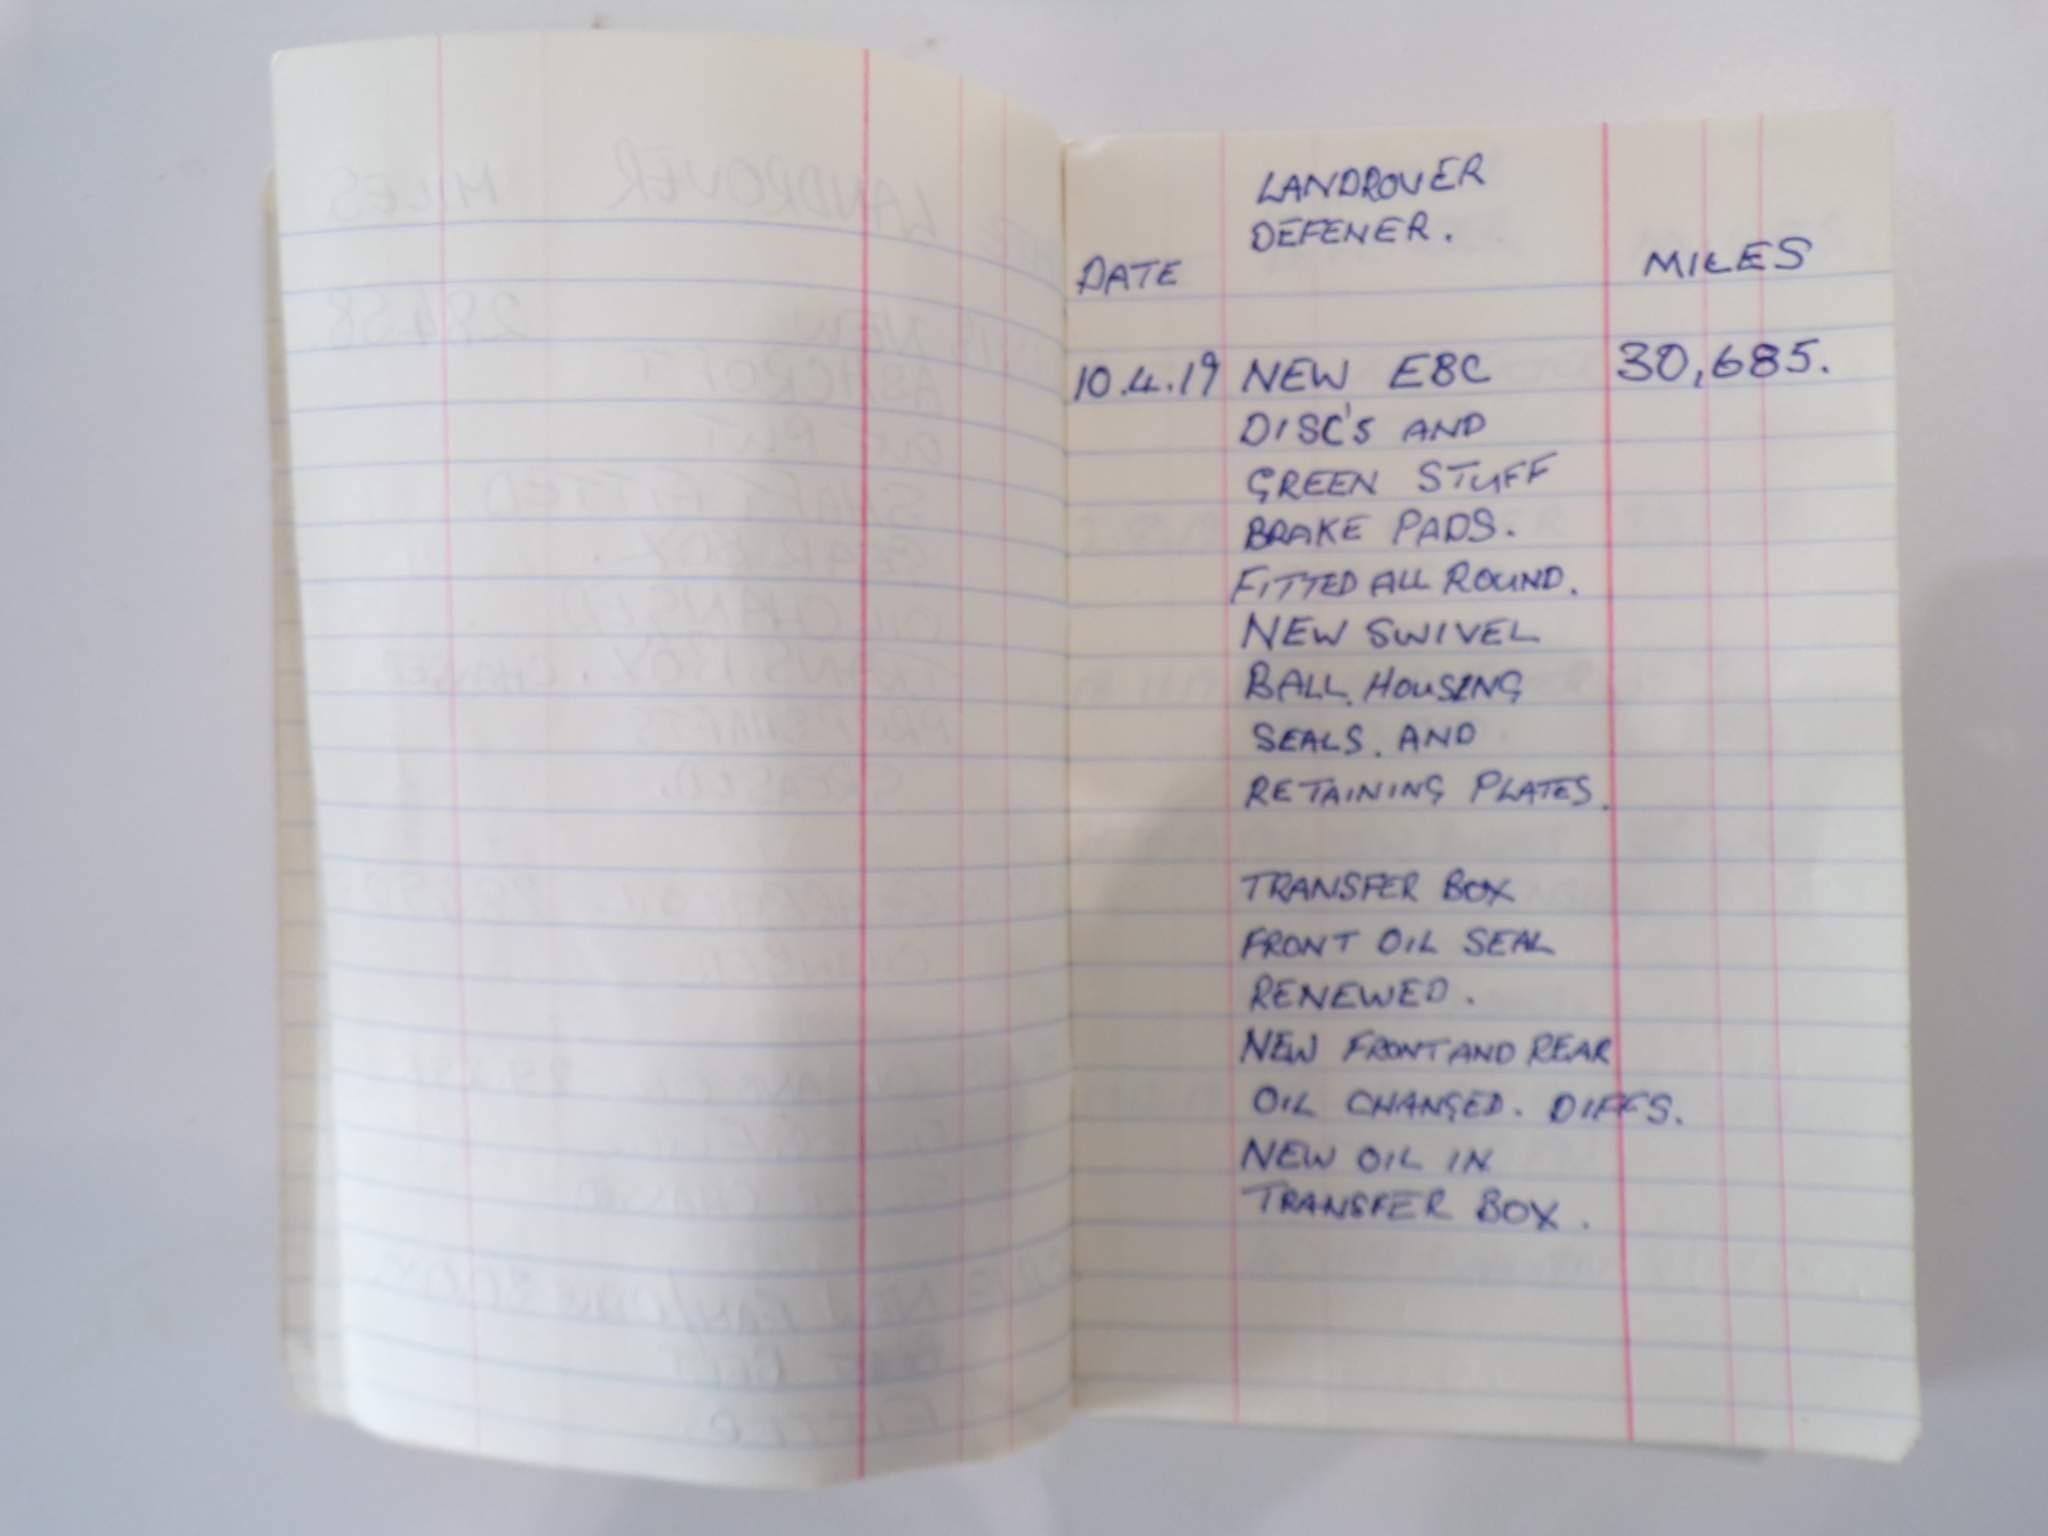 LANDROVER
DEFENER.
DATE
MILES
10.4.19 NEW EBC 30,685.
DISC'S AND
GREEN STUFF
BRAKE PADS.
FITTED ALL ROUND.
NEW SWIVEL
BALL HOUSING
SEALS. AND
RETAINING PLATES.
TRANSFER BOX
FRONT OIL SEAL
RENEWED.
NEW FRONT AND REAR
OIL CHANGED. DIFFS.
NEW OIL IN
TRANSFER BOX.